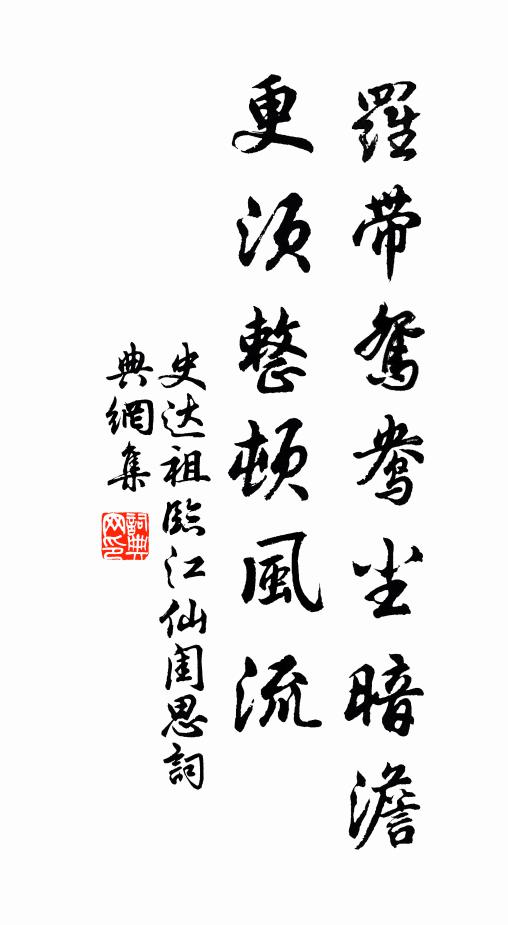 羅帶鴛鴦尘暗澹
更须整頓風流
史达祖臨江仙闺思詞
典網集
詞典
网印